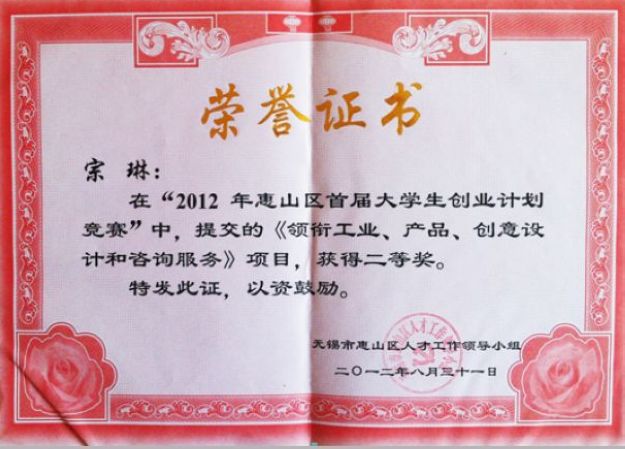 荣誉证书
宗 琳：
在“2012 年惠山区首届大学生创业计划
竞赛”中，提交的《领衔工业、产品、创意设
计和咨询服务》项目，获得二等奖。
特发此证，以资鼓励。
无锡市惠山区人才工作领导小组
二〇一二年八月三十一日